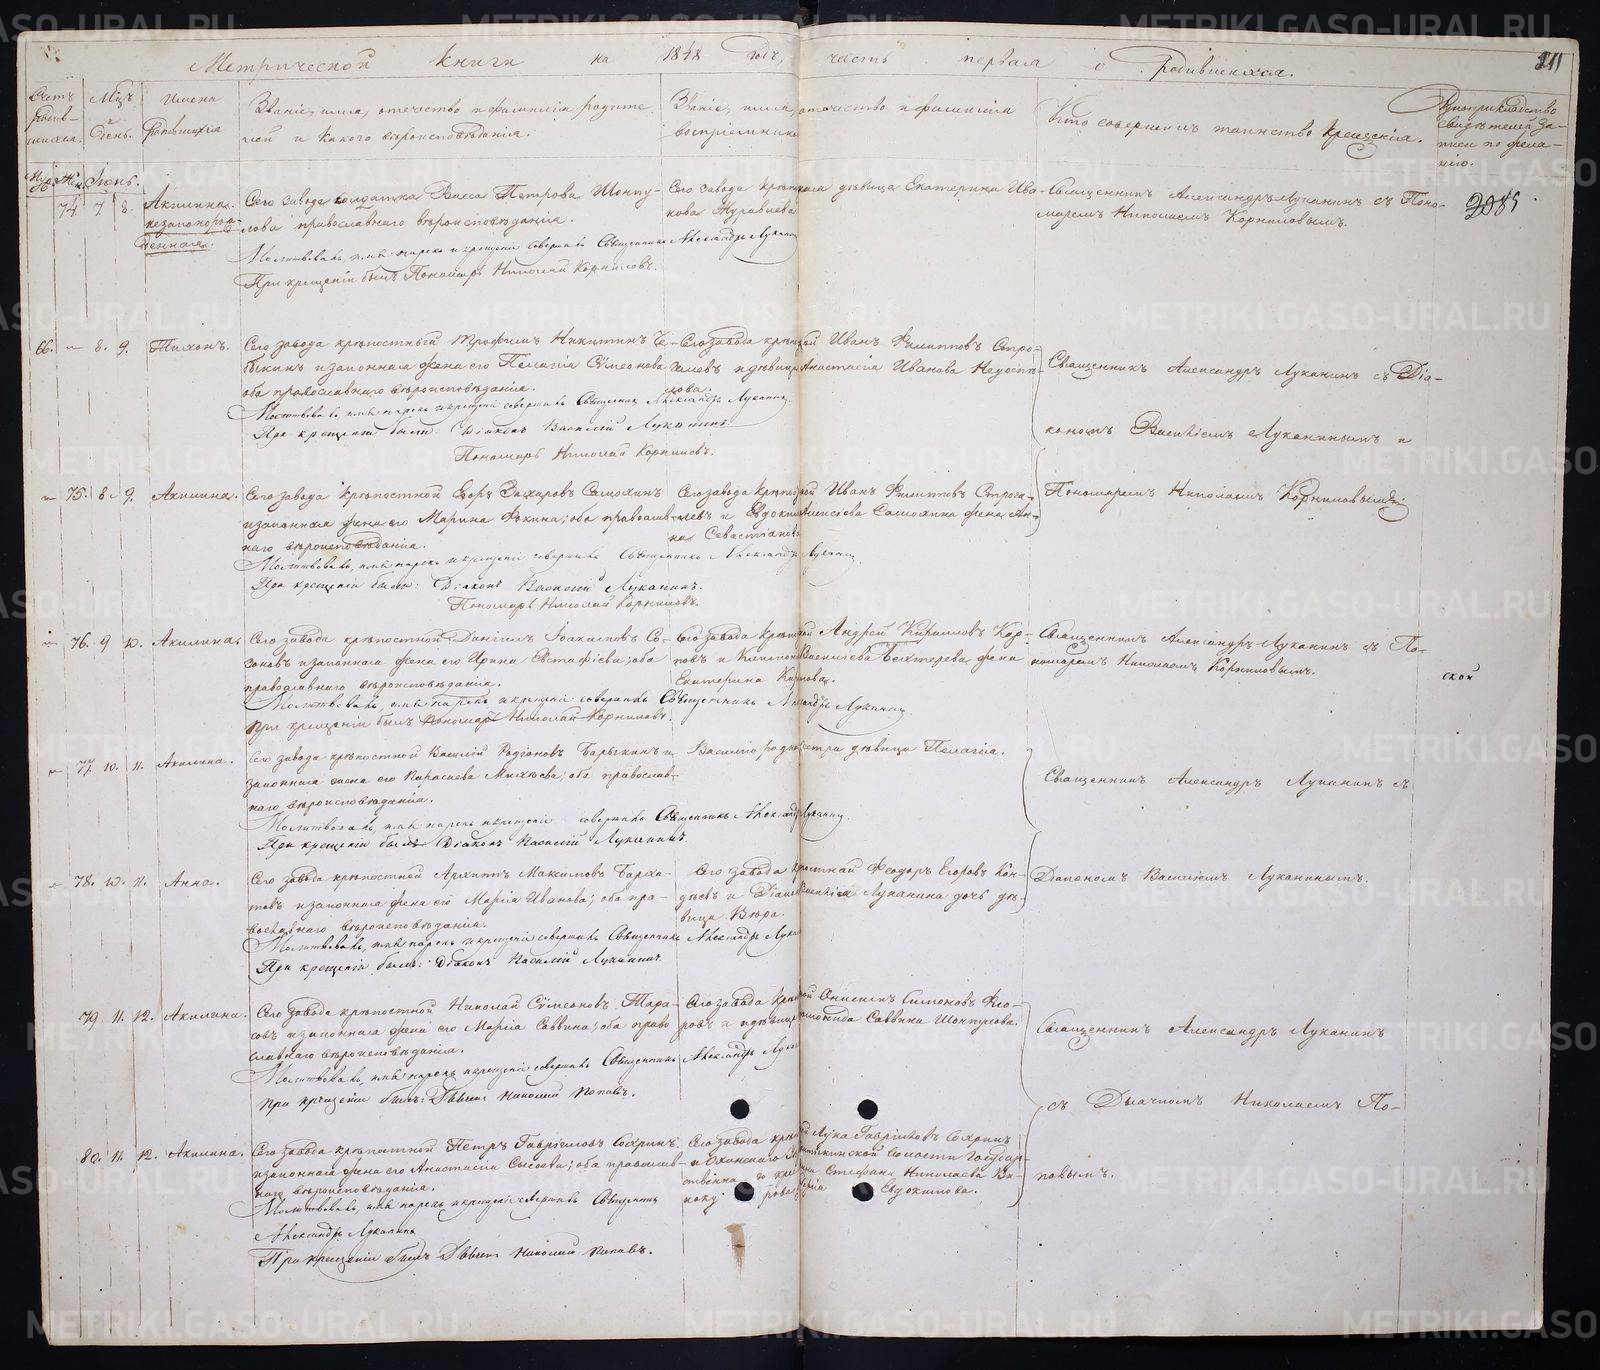 Метрической книги на 1848 годъ, часть первая о Родившихся.
Счетъ родив-шихся.
Мѣц. и День.
Имена Родившихся
Званіе, имя, отечество и фамилія родите-
лей и какого вѣроисповѣданія.
Званіе, имя, отечество и фамилія
воспріемниковъ
Кто совершилъ таинство крещенія.
Рукоприкладство
свидѣтелей за-
писи по жела-
нію.
Муж. Жен. Іюнь.
74. 7 8. Акилина незаконорож-
денная.
Сего завода солдатка Васса Петрова Шонту-
рова православнаго вѣроисповѣданія.
Молитвовалъ, имя нарекъ и крещеніе совершилъ Священникъ Александръ Луканинъ
При крещеніи былъ Пономарь Николай Корниловъ.
Сего завода крѣпостная дѣвица Екатерина Ива-
нова Журавлева
Священникъ Александръ Луканинъ съ Поно-
маремъ Николаемъ Корниловымъ.
66. 8. 9. Тихонъ.
Сего завода крѣпостный Трофимъ Никитинъ
и законная жена его Пелагія Сѵмеонова
оба православнаго вѣроисповѣданія.
Молитвовалъ, имя нарекъ и крещеніе совершилъ Священникъ Александръ Луканинъ.
При крещеніи были: Діаконъ Василій Луканинъ
Пономарь Николай Корниловъ.
Сего завода крѣпостной Иванъ Филипповъ Стро-
галевъ и дѣвица Анастасія Иванова
Священникъ Александръ Луканинъ съ Діа-
кономъ Василіемъ Луканинымъ и
75. 8. 9. Акилина.
Сего завода крѣпостной Егоръ Захаровъ Самохинъ
и законная жена его Марина Ѳокина; оба православ-
наго вѣроисповѣданія.
Молитвовалъ, имя нарекъ и крещеніе совершилъ Священникъ Александръ Луканинъ
При крещеніи были: Діаконъ Василій Луканинъ.
Пономарь Николай Корниловъ.
Сего завода крѣпостной Иванъ Филипповъ Строга-
левъ и Евдокима Алексіева Самохина жена Ан-
на Севастіанова
Пономаремъ Николаемъ Корниловымъ.
76. 9 10. Акилина.
Сего завода крѣпостной Даніилъ Іоакимовъ Со-
зоновъ и законная жена его Ирина Евстафіева; оба
православнаго вѣроисповѣданія.
Молитвовалъ, имя нарекъ и крещеніе совершилъ Священникъ Александръ Луканинъ
При крещеніи былъ Пономарь Николай Корниловъ.
Сего завода крѣпостной Андрей Кирилловъ Кор-
повъ и Василіева Бехтерева жена
Екатерина Карпова.
Священникъ Александръ Луканинъ съ По-
номаремъ Николаемъ Корниловымъ.
ской
77. 10. 11. Акилина.
Сего завода крѣпостной Василій Родіоновъ Барыкинъ и
законная жена его Параскева Михѣева; оба православ-
наго вѣроисповѣданія.
Молитвовалъ, имя нарекъ и крещеніе совершилъ Священникъ Александръ Луканинъ
При крещеніи былъ Діаконъ Василій Луканинъ.
Василію родная сестра дѣвица Пелагія.
Священникъ Александръ Луканинъ съ
78. 10. 11. Анна.
Сего завода крѣпостной Архипъ Максимовъ Барха-
товъ и законная жена его Марія Иванова; оба пра-
вославнаго вѣроисповѣданія.
Молитвовалъ, имя нарекъ и крещеніе совершилъ Священникъ Александръ Луканинъ
При крещеніи былъ: Діаконъ Василій Луканинъ
Сего завода крѣпостной Ѳеодоръ Егоровъ
и Діакона Василія Луканина дочь дѣ-
вица Вѣра.
Діакономъ Василіемъ Луканинымъ.
79. 11. 12. Акилина.
Сего завода крѣпостной Николай Сѵмеоновъ Тара-
совъ и законная жена его Марія Саввина; оба право-
славнаго вѣроисповѣданія.
Молитвовалъ, имя нарекъ и крещеніе совершилъ Священникъ Александръ Луканинъ
При крещеніи былъ: Дьячекъ Николай Поповъ.
Сего завода крѣпостной Онисимъ Симоновъ
и дѣвица Саввина Шонтурова.
Священникъ Александръ Луканинъ
съ Дьячкомъ Николаемъ По-
80. 11. 12. Акилина.
Сего завода крѣпостной Петръ Гавріиловъ Сохринъ
и законная жена его Анастасія Сысоева; оба православ-
наго вѣроисповѣданія.
Молитвовалъ, имя нарекъ и крещеніе совершилъ Священникъ
Александръ Луканинъ
При крещеніи былъ Дьячекъ Николай Поповъ.
Сего завода крѣпостной Лука Гавріиловъ Сохринъ
волости Государ-
Стефана Николаева
Евдокимова.
повымъ.
METRIKI.GASO-URAL.RU